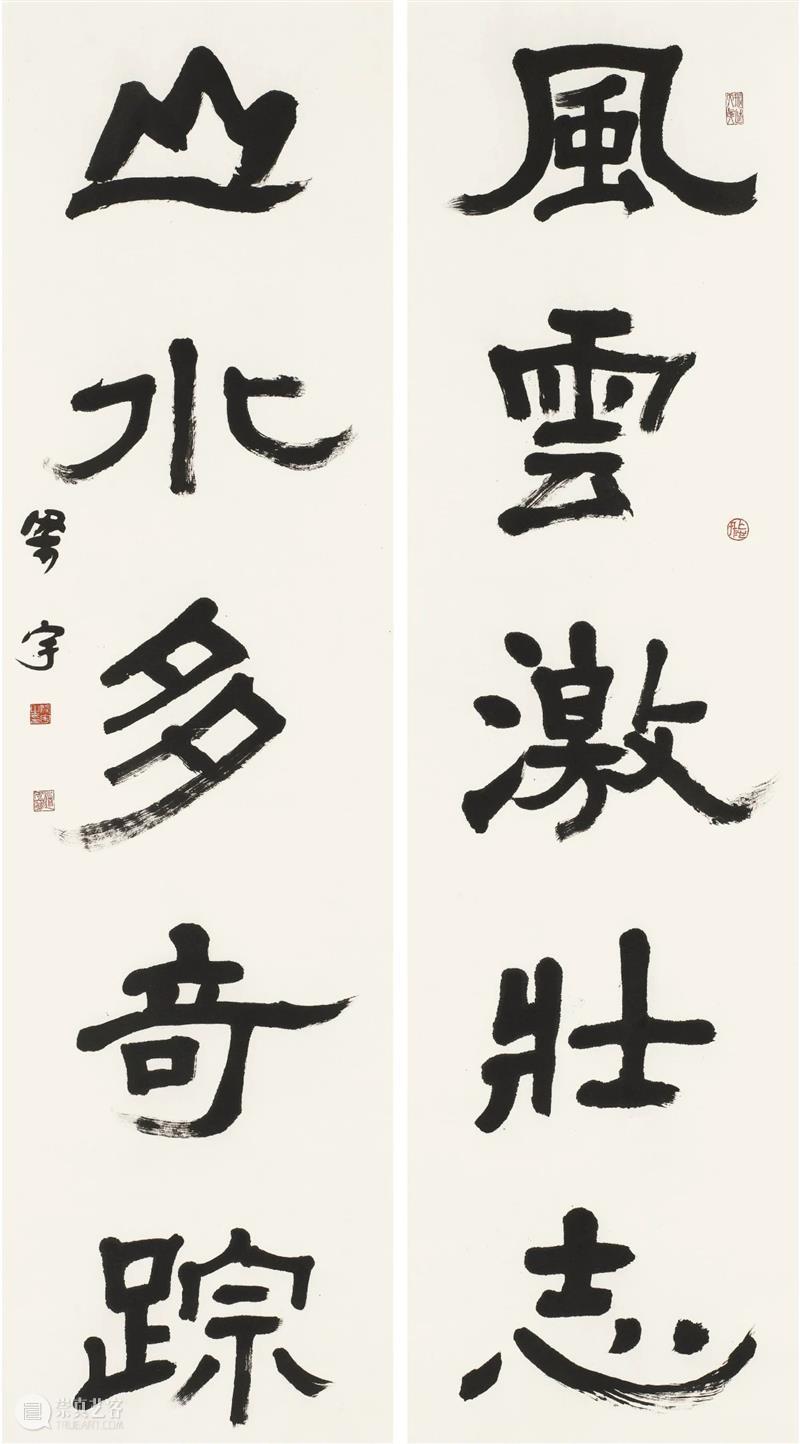 風雲激壯志
山水多奇踪
宇
崇真艺客
TRUEART.COM